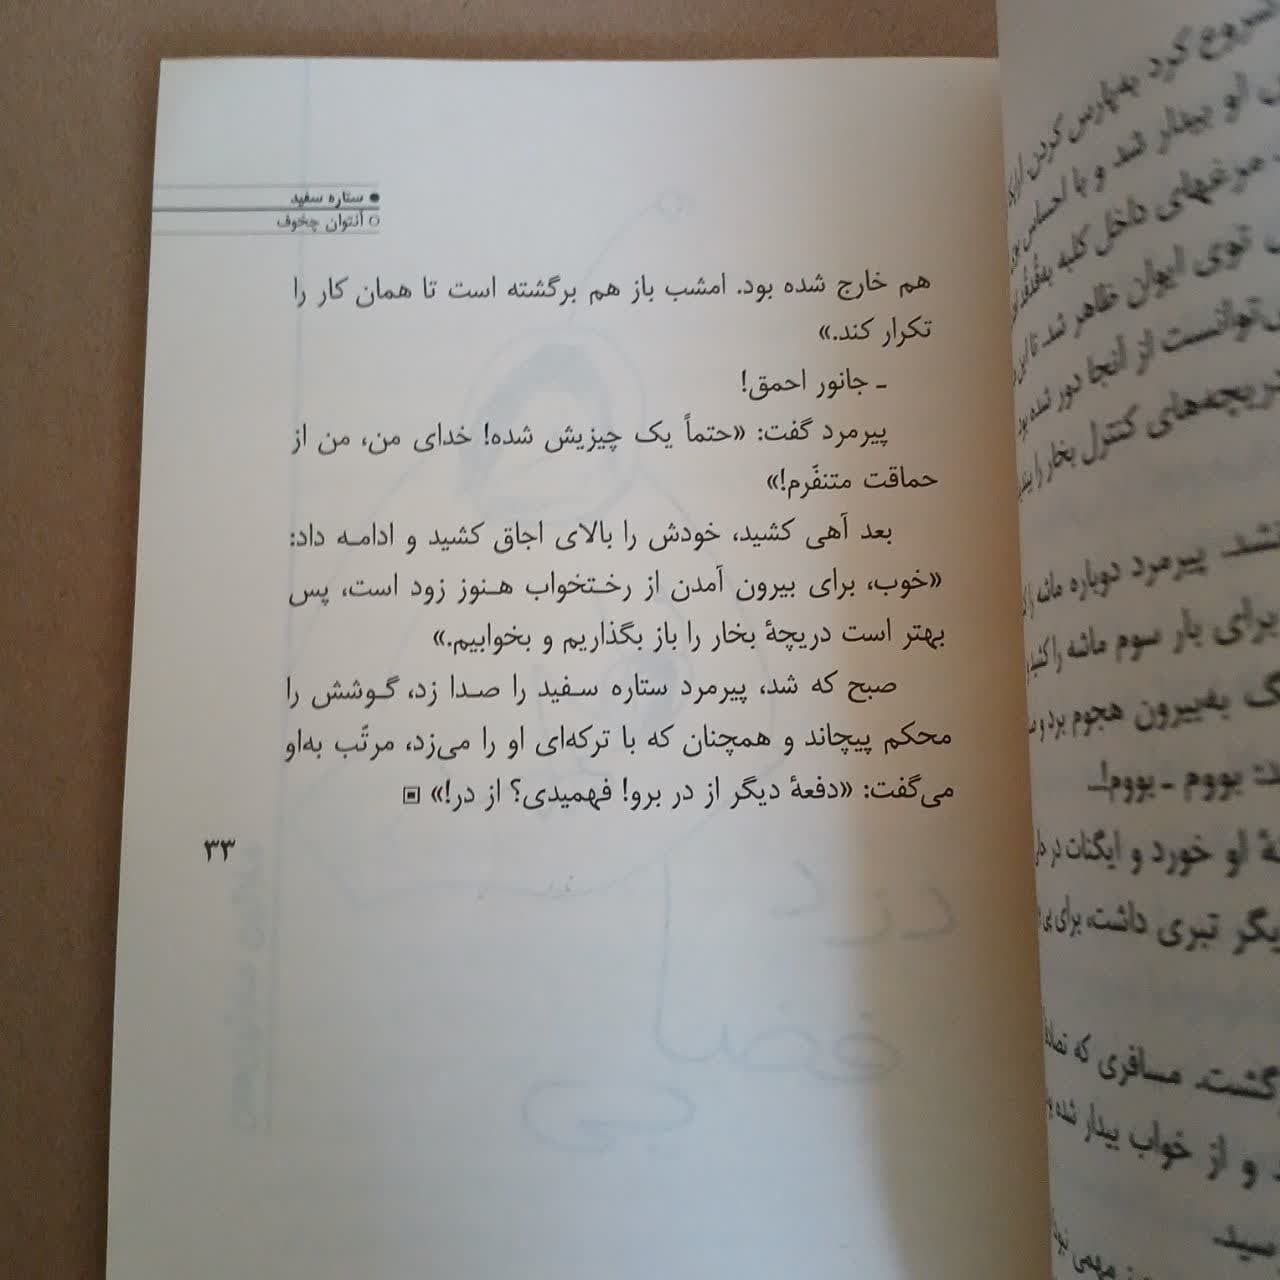 ستاره سفید
آنتوان چخوف
هم خارج شده بود. امشب باز هم برگشته است تا همان کار را
تکرار کند.»
ـ جانور احمق!
پیرمرد گفت: «حتماً یک چیزیش شده! خدای من، من از
حماقت متنفّرم!»
بعد آهی کشید، خودش را بالای اجاق کشید و ادامه داد:
«خوب، برای بیرون آمدن از رختخواب هنوز زود است، پس
بهتر است دریچهٔ بخار را باز بگذاریم و بخوابیم.»
صبح که شد، پیرمرد ستاره سفید را صدا زد، گوشش را
محکم پیچاند و همچنان که با ترکه‌ای او را می‌زد، مرتّب به‌او
می‌گفت: «دفعهٔ دیگر از در برو! فهمیدی؟ از در!»
۳۳
شروع کرد به‌پارس کردن.
او بیدار شد و با احساس
مرغهای داخل کلبه به‌قُدقُد
توی ایوان ظاهر شد. تا این
توانست از آنجا دور شده بود
دریچه‌های کنترل بخار را
پیرمرد دوباره ماشه را
برای بار سوم ماشه را کشید
به‌بیرون هجوم برد و
بووم ـ بووم!
او خورد و ایگنات در
دیگر تبری داشت، برای
گشت. مسافری که
و از خواب بیدار شده
مهمی